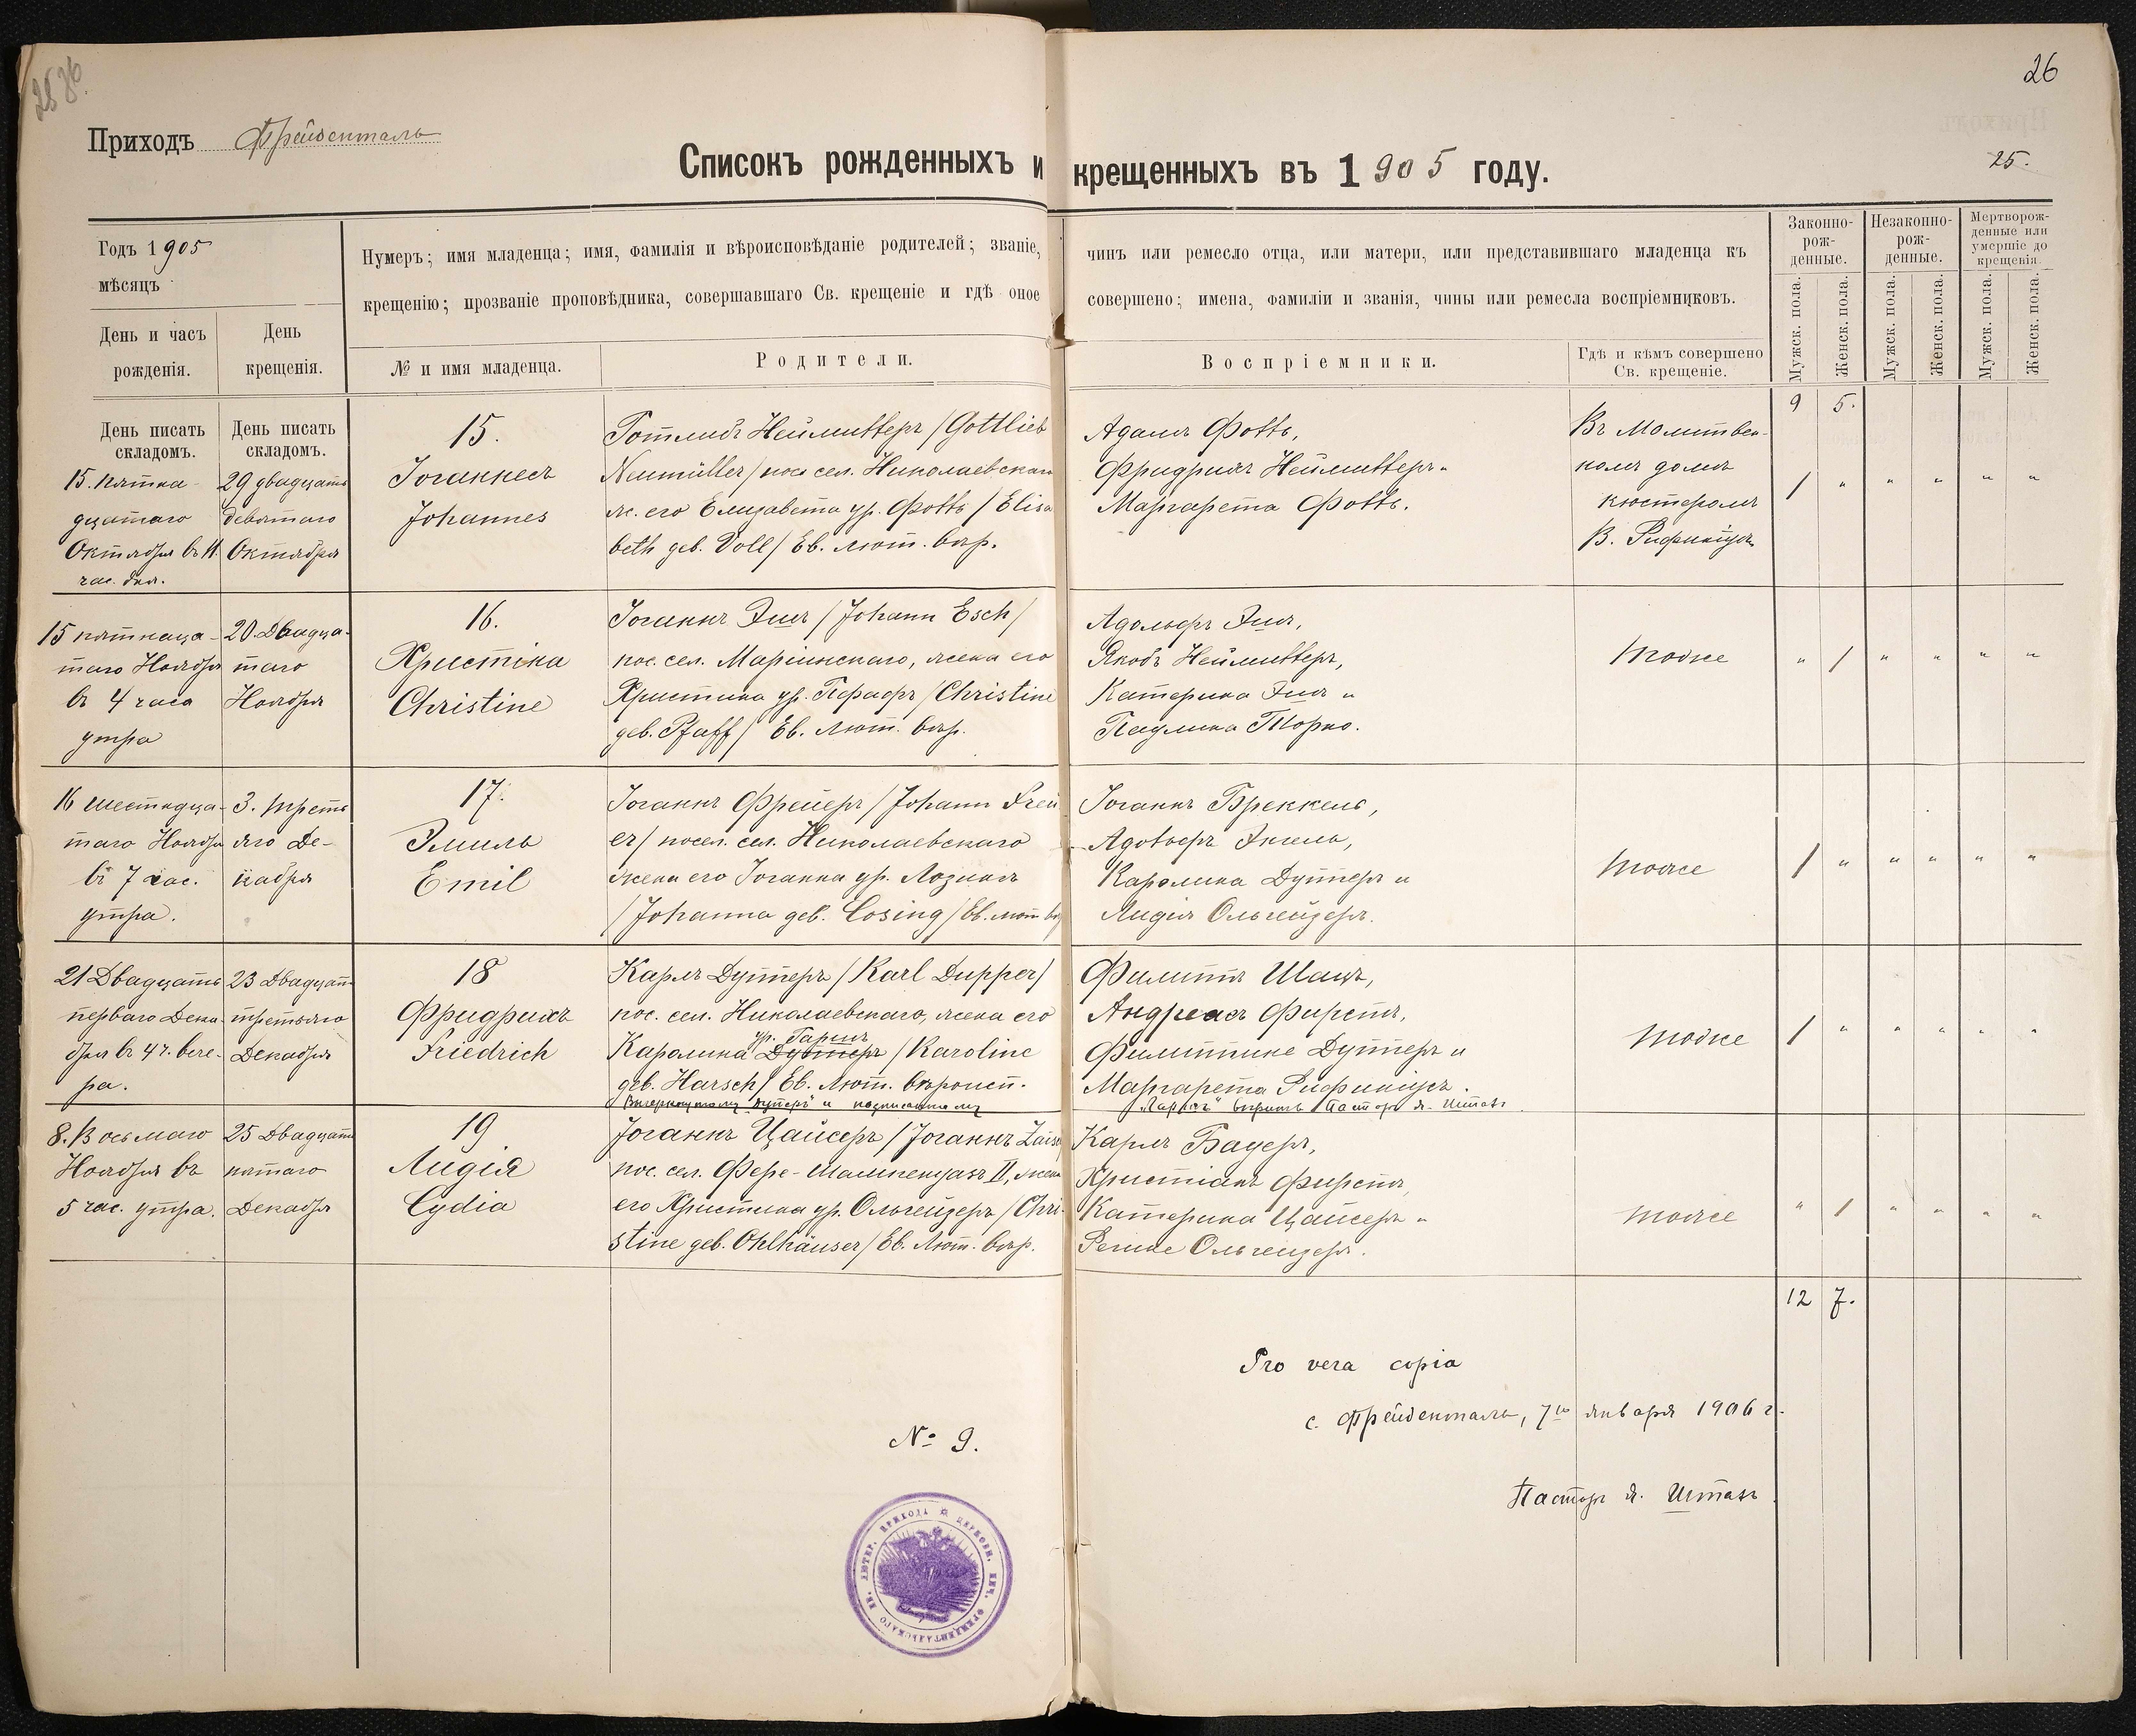 26
Приходъ Фрейденталь
Списокъ рожденныхъ и крещенныхъ въ 1905 году.
25.
Годъ 1905
мѣсяцъ
День и часъ
рожденія.
День
крещенія.
Нумеръ; имя младенца; имя, фамилія и вѣроисповѣданіе родителей; званіе, чинъ или ремесло отца, или матери, или представившаго младенца къ
крещенію; прозваніе проповѣдника, совершавшаго Св. крещеніе и гдѣ оное совершено; имена, фамиліи и званія, чины или ремесла воспріемниковъ.
№ и имя младенца.
Родители.
Воспріемники.
Гдѣ и кѣмъ совершено
Св. крещеніе.
Законно-
рож-
денные.
Незаконно-
рож-
денные.
Мертворож-
денные или
умершіе до
крещенія.
Мужск. пола.
Женск. пола.
Мужск. пола.
Женск. пола.
Мужск. пола.
Женск. пола.
9 5.
День писать
складомъ.
День писать
складомъ.
15. пятна-
дцатаго
Октября въ 11
час. дня.
29 двадцать
девятаго
Октября
15.
Іоганнесъ
Johannes
Готлибъ Неймиллеръ / Gottlieb
Neumüller / пос. сел. Николаевскаго
ж. его Елизавета ур. Фолль / Elisa
beth geb. Voll / Ев. Лют. вѣр.
Адамъ Фолль,
Фридрихъ Неймиллеръ и
Маргарета Фолль.
Въ Молитвен-
номъ домѣ
кюстеромъ
В.
1 " " " " "
15 пятнаца-
таго Ноября
въ 4 часа
утра
20. Двадца-
таго
Ноября
16.
Христіна
Christine
Іоганнъ Эшъ / Johann Esch /
пос. сел. Маріинскаго, жена его
Христина ур. Пфафъ / Christine
geb. Pfaff / Ев. Лют. вѣр.
Адольфъ Эшъ,
Якобъ Неймиллеръ,
Катерина Эшъ и
Паулина Торно.
тоже
" 1 " " " "
16 шестнадца-
таго Ноября
въ 7 час.
утра.
3. треть
яго Де-
кабря
17.
Эмиль
Emil
Іоганнъ Фрейеръ / Johann Frei
er / посел. сел. Николаевскаго
жена его Іоганна ур. Лозингъ
/ Johanna geb. Losing / Ев. Лют. вѣр
Іоганнъ Бреккель,
Адольфъ
Каролина Дупперъ и
Лидія Ольгейзеръ.
тоже
1 " " " " "
21 Двадцать
перваго Дека-
бря въ 4 ч. вече-
ра.
23 Двадцать
третьяго
Декабря
18
Фридрихъ
Friedrich
Карлъ Дупперъ / Karl Dupper /
пос. сел. Николаевскаго, жена его
ур. Гаршъ
Каролина Дупперъ / Karoline
geb. Harsch / Ев. Лют. вѣроисп.
Вычеркнутому "Дуперъ" и надписанному
"Гаршъ" вѣрить Пасторъ Я. Штахъ
Филиппъ Шацъ,
Андреасъ Фирстъ,
Филиппине Дупперъ и
Маргарета
тоже
1 " " " " "
8. Восьмаго
Ноября въ
5 час. утра.
25 Двадцать
пятаго
Декабря
19
Лидія
Lydia
Іоганнъ Цайсеръ / Іоганнъ Zaiser
пос. сел. Фере-Шампенуазъ II, жена
его Христина ур. Ольгейзеръ / Chri-
stine geb. Ohlhäuser / Ев. Лют. вѣр.
Карлъ Бауеръ,
Христіанъ Фирстъ,
Катерина Цайсеръ и
Регине Ольгейзеръ.
тоже
" 1 " " " "
12 7.
Pro vera copia
с. Фрейденталь, 7го января 1906 г.
№ 9.
Пасторъ Я. Штахъ